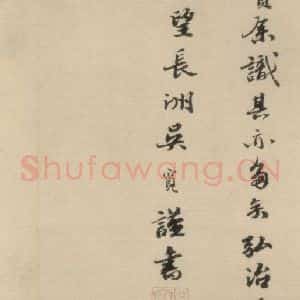 賓客識其亦當矣弘治
望長洲吳寬謹書
Shufawang.CN